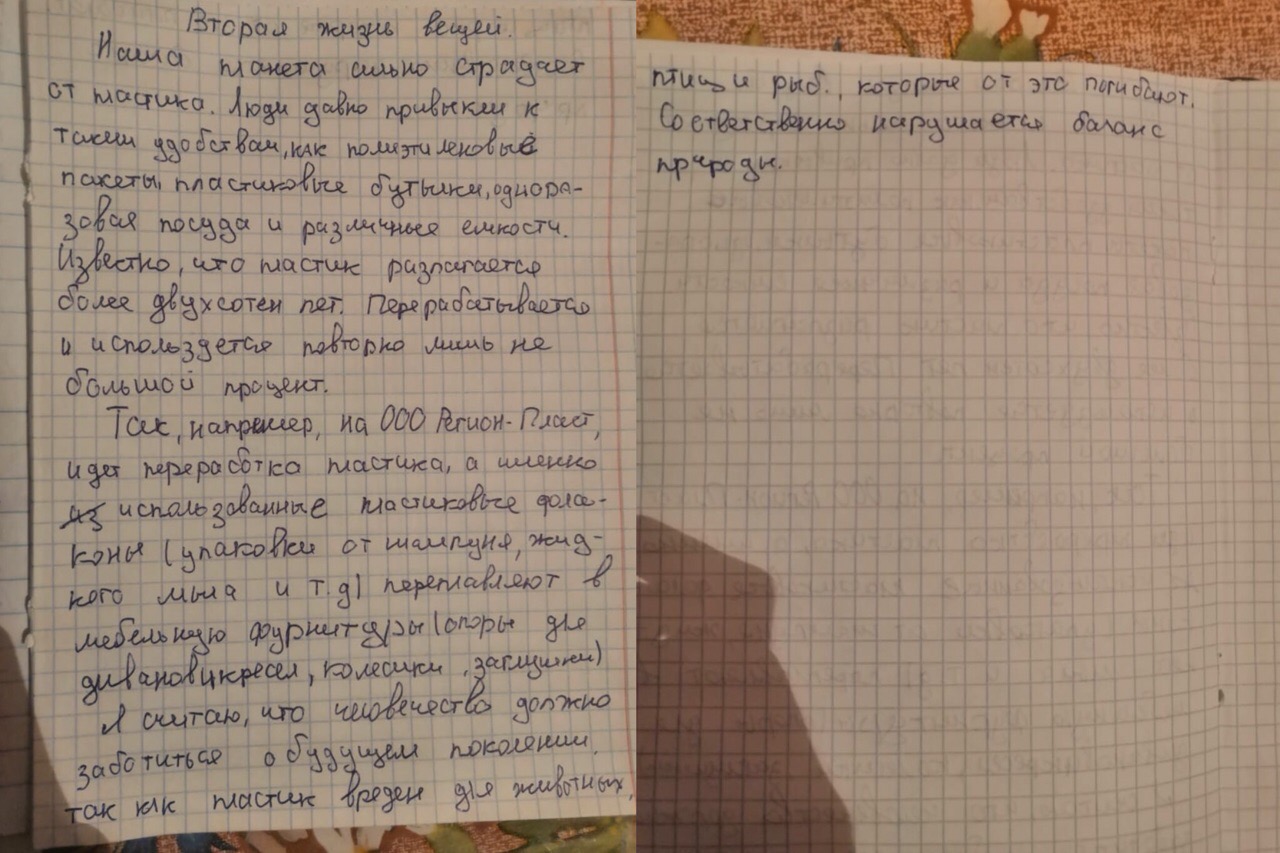 Вторая жизнь вещей.
Наша планета сильно страдает
от пластика. Люди давно привыкли к
таким удобствам, как полиэтиленовые
пакеты, пластиковые бутылки, однора-
зовая посуда и различные емкости.
Известно, что пластик разлагается
более двухсотен лет. Перерабатывается
и используется повторно лишь не
большой процент.
Так, например, на ООО Регион-Пласт,
идет переработка пластика, а именно
использованные пластиковые фла-
коны (упаковки от шампуня, жид-
кого мыла и т.д) переплавляют в
мебельную фурнитуры (опоры для
диванов и кресел, колесики, заглушки)
Я считаю, что человечество должно
заботиться о будущем поколении,
так как пластик вреден для животных,
птиц и рыб., которые от это погибают.
Соответственно нарушается баланс
природы.